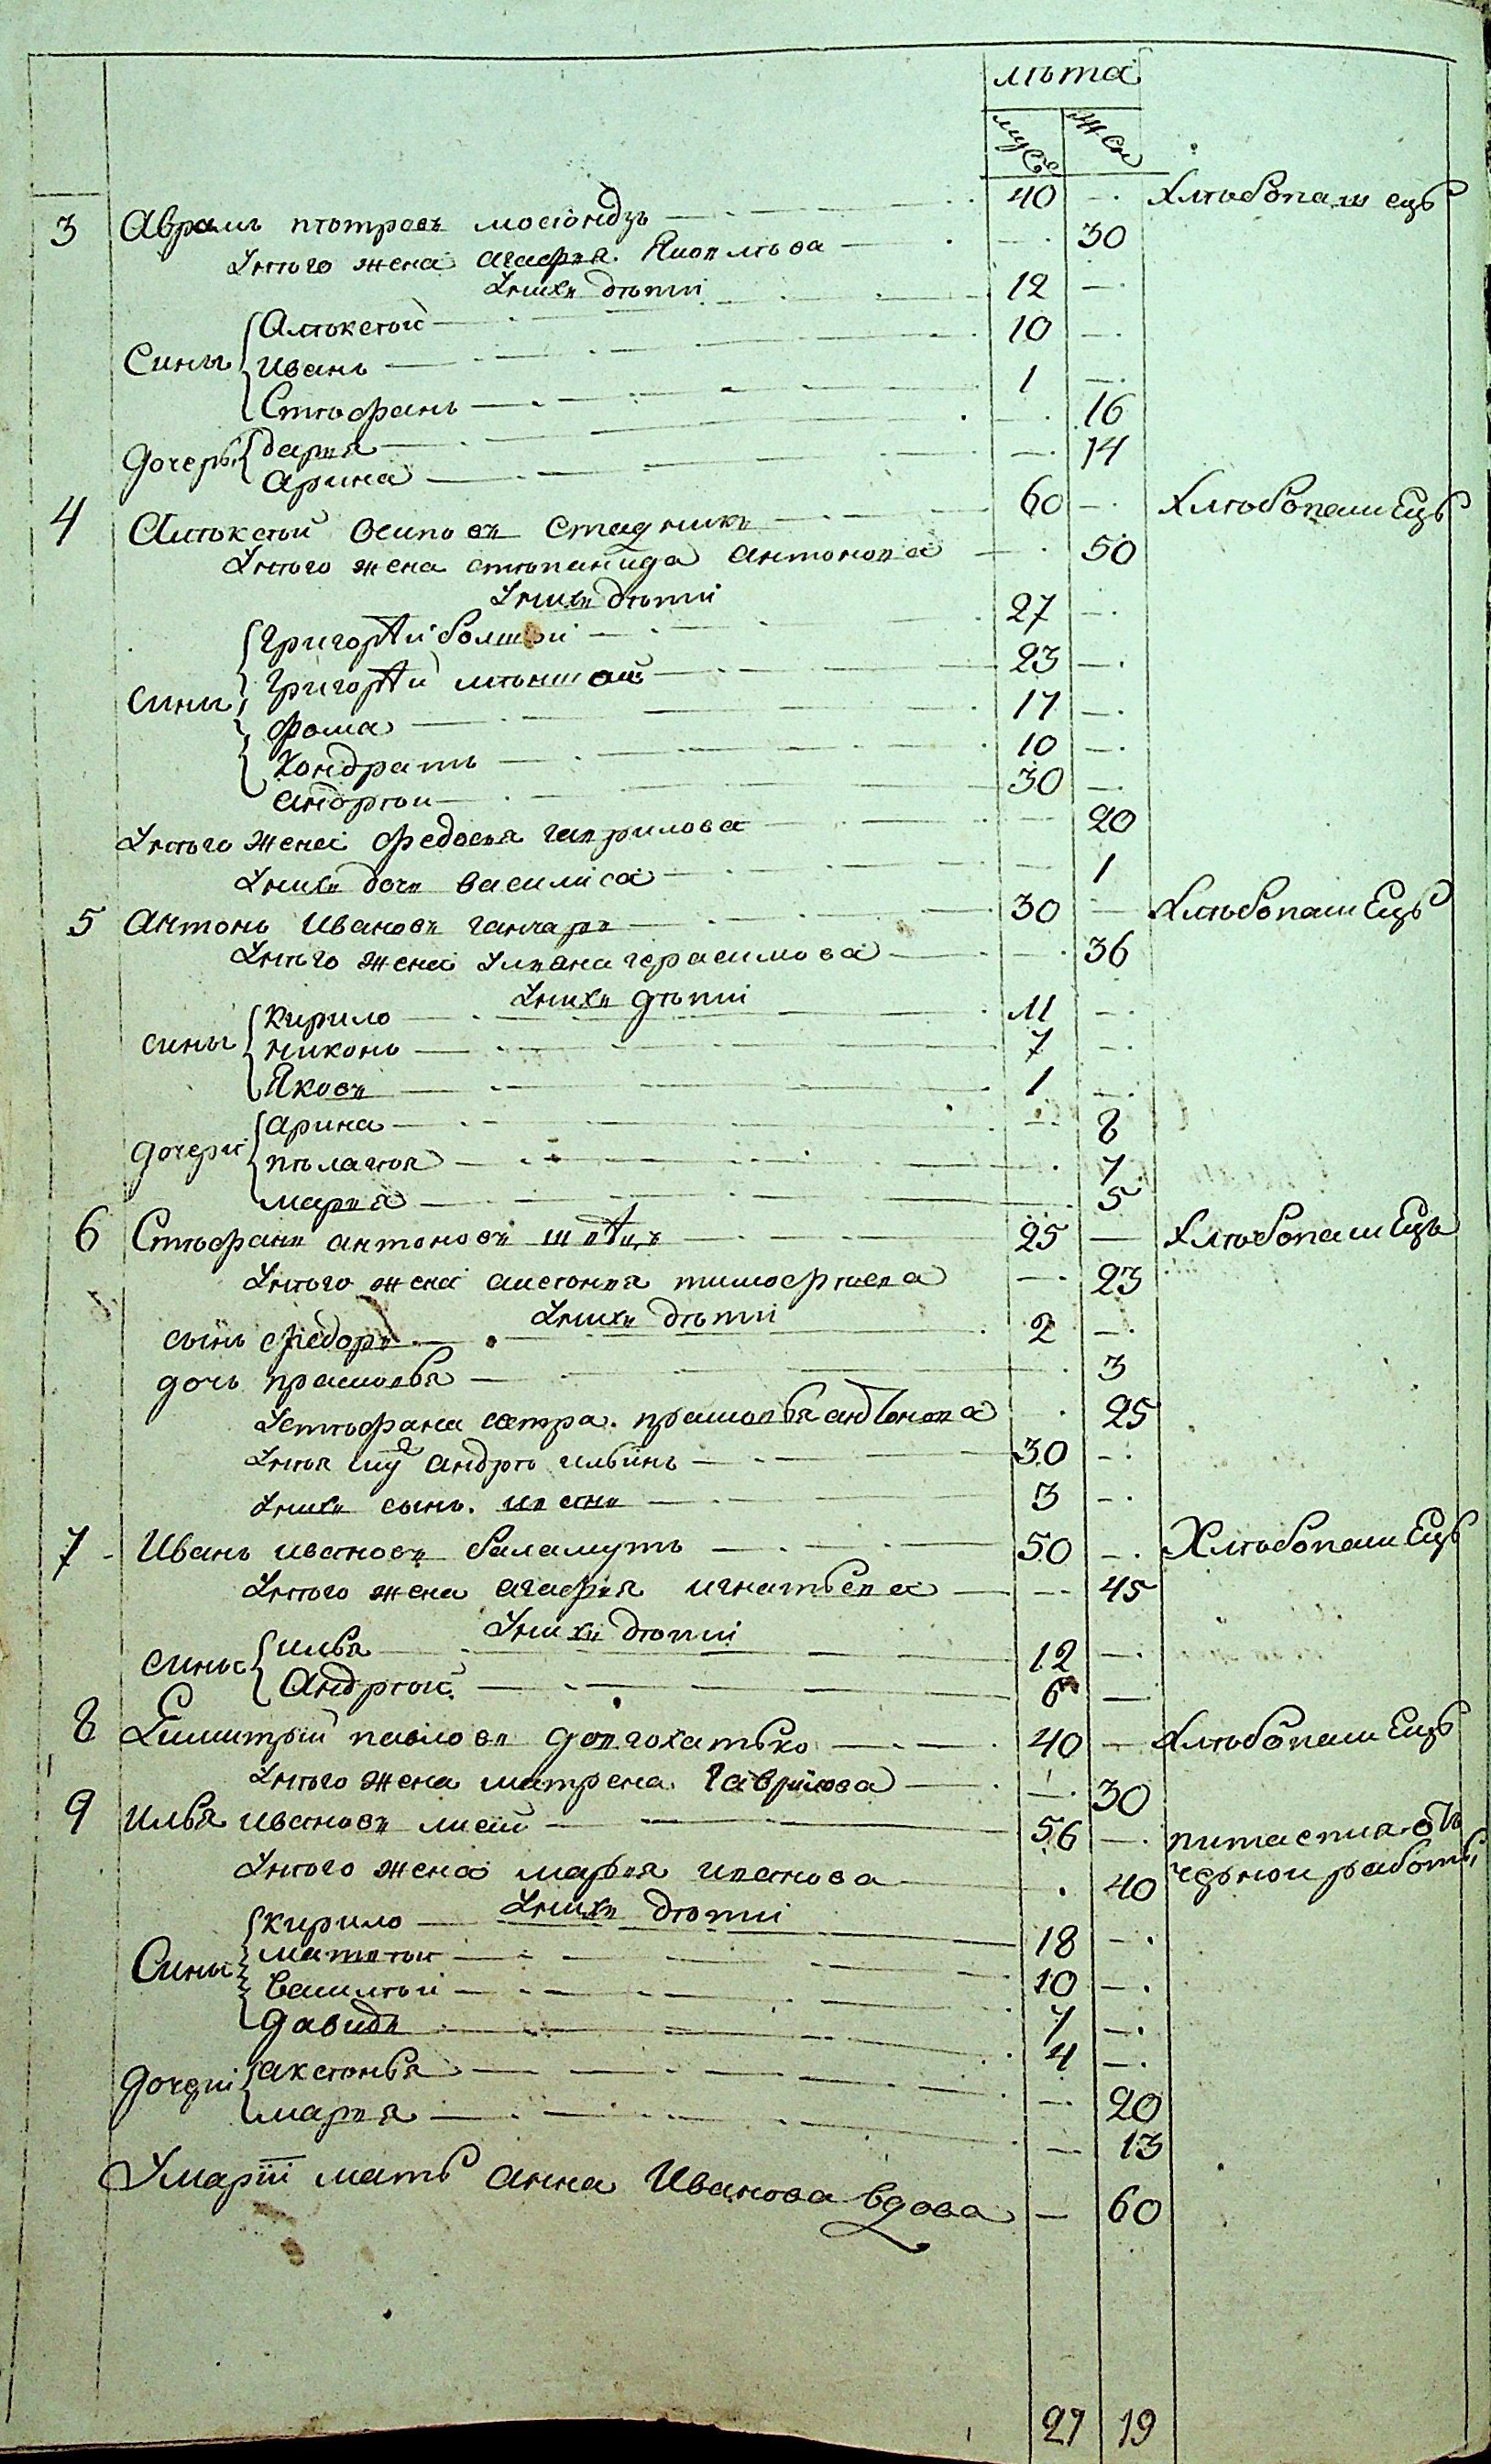 лѣта
муск женск
3 Аврамъ пѣтровъ мосѣондзъ 40 — Хлѣбопашецъ
Унѣго жена агафия Яковлѣва — 30
Унихъ дѣти
Сины Алѣксѣй 12 —
Иванъ 10 —
Стѣфанъ 1 —
дочеры дария — 16
арина — 14
4 Алѣксѣй Осиповъ Стадникъ 60 — ХлѣбопашЕцъ
Унѣго жена стѣпанида антонова — 50
Унихъ дѣти
Сины Григорѣй болшой 27 —
Григорѣй мѣншой 23 —
фома 17 —
Кондратъ 10 —
андрѣй 30 —
Унѣго жена федосия гаврилова — 20
Унихъ дочь василиса — 1
5 антонъ Ивановъ ганчаръ 30 — ХлѣбопашЕцъ
Унѣго жена улияна герасимова — 36
Унихъ дѣти
сины кирило 11 —
никонъ 7 —
Яковъ 1 —
дочери арина — 8
пѣлагѣя — 7
мария — 5
6 Стѣфанъ антоновъ 25 — ХлѣбопашЕцъ
Унѣго жена аксѣния тимофѣева — 23
Унихъ дѣти
сынъ федоръ 2 —
дочь прасковья — 3
Устѣфана сѣстра прасковья антонова 25
Унѣя му андрѣ ильинъ 30 —
Унихъ сынъ ивань 3 —
7 Иванъ ивановъ баламутъ 50 — ХлѣбопашЕцъ
Унѣго жена агафия игнатьева — 45
Унихъ дѣти
сины илья 12 —
Андрѣй 6 —
8 Димитрый павловъ довгохатько 40 — ХлѣбопашЕцъ
Унѣго жена матрена Гаврилова — 30
9 Илья ивановъ лисый 56 — питаетца отъ
Унѣго жена мария иванова 40 чорной работы
Унихъ дѣти
Сины кирило 18 —
матвѣй 10 —
василѣй 7 —
давидъ 4 —
дочери аксѣнья — 20
мария — 13
Умарѣи мать анна Иванова вдова — 60
27 19